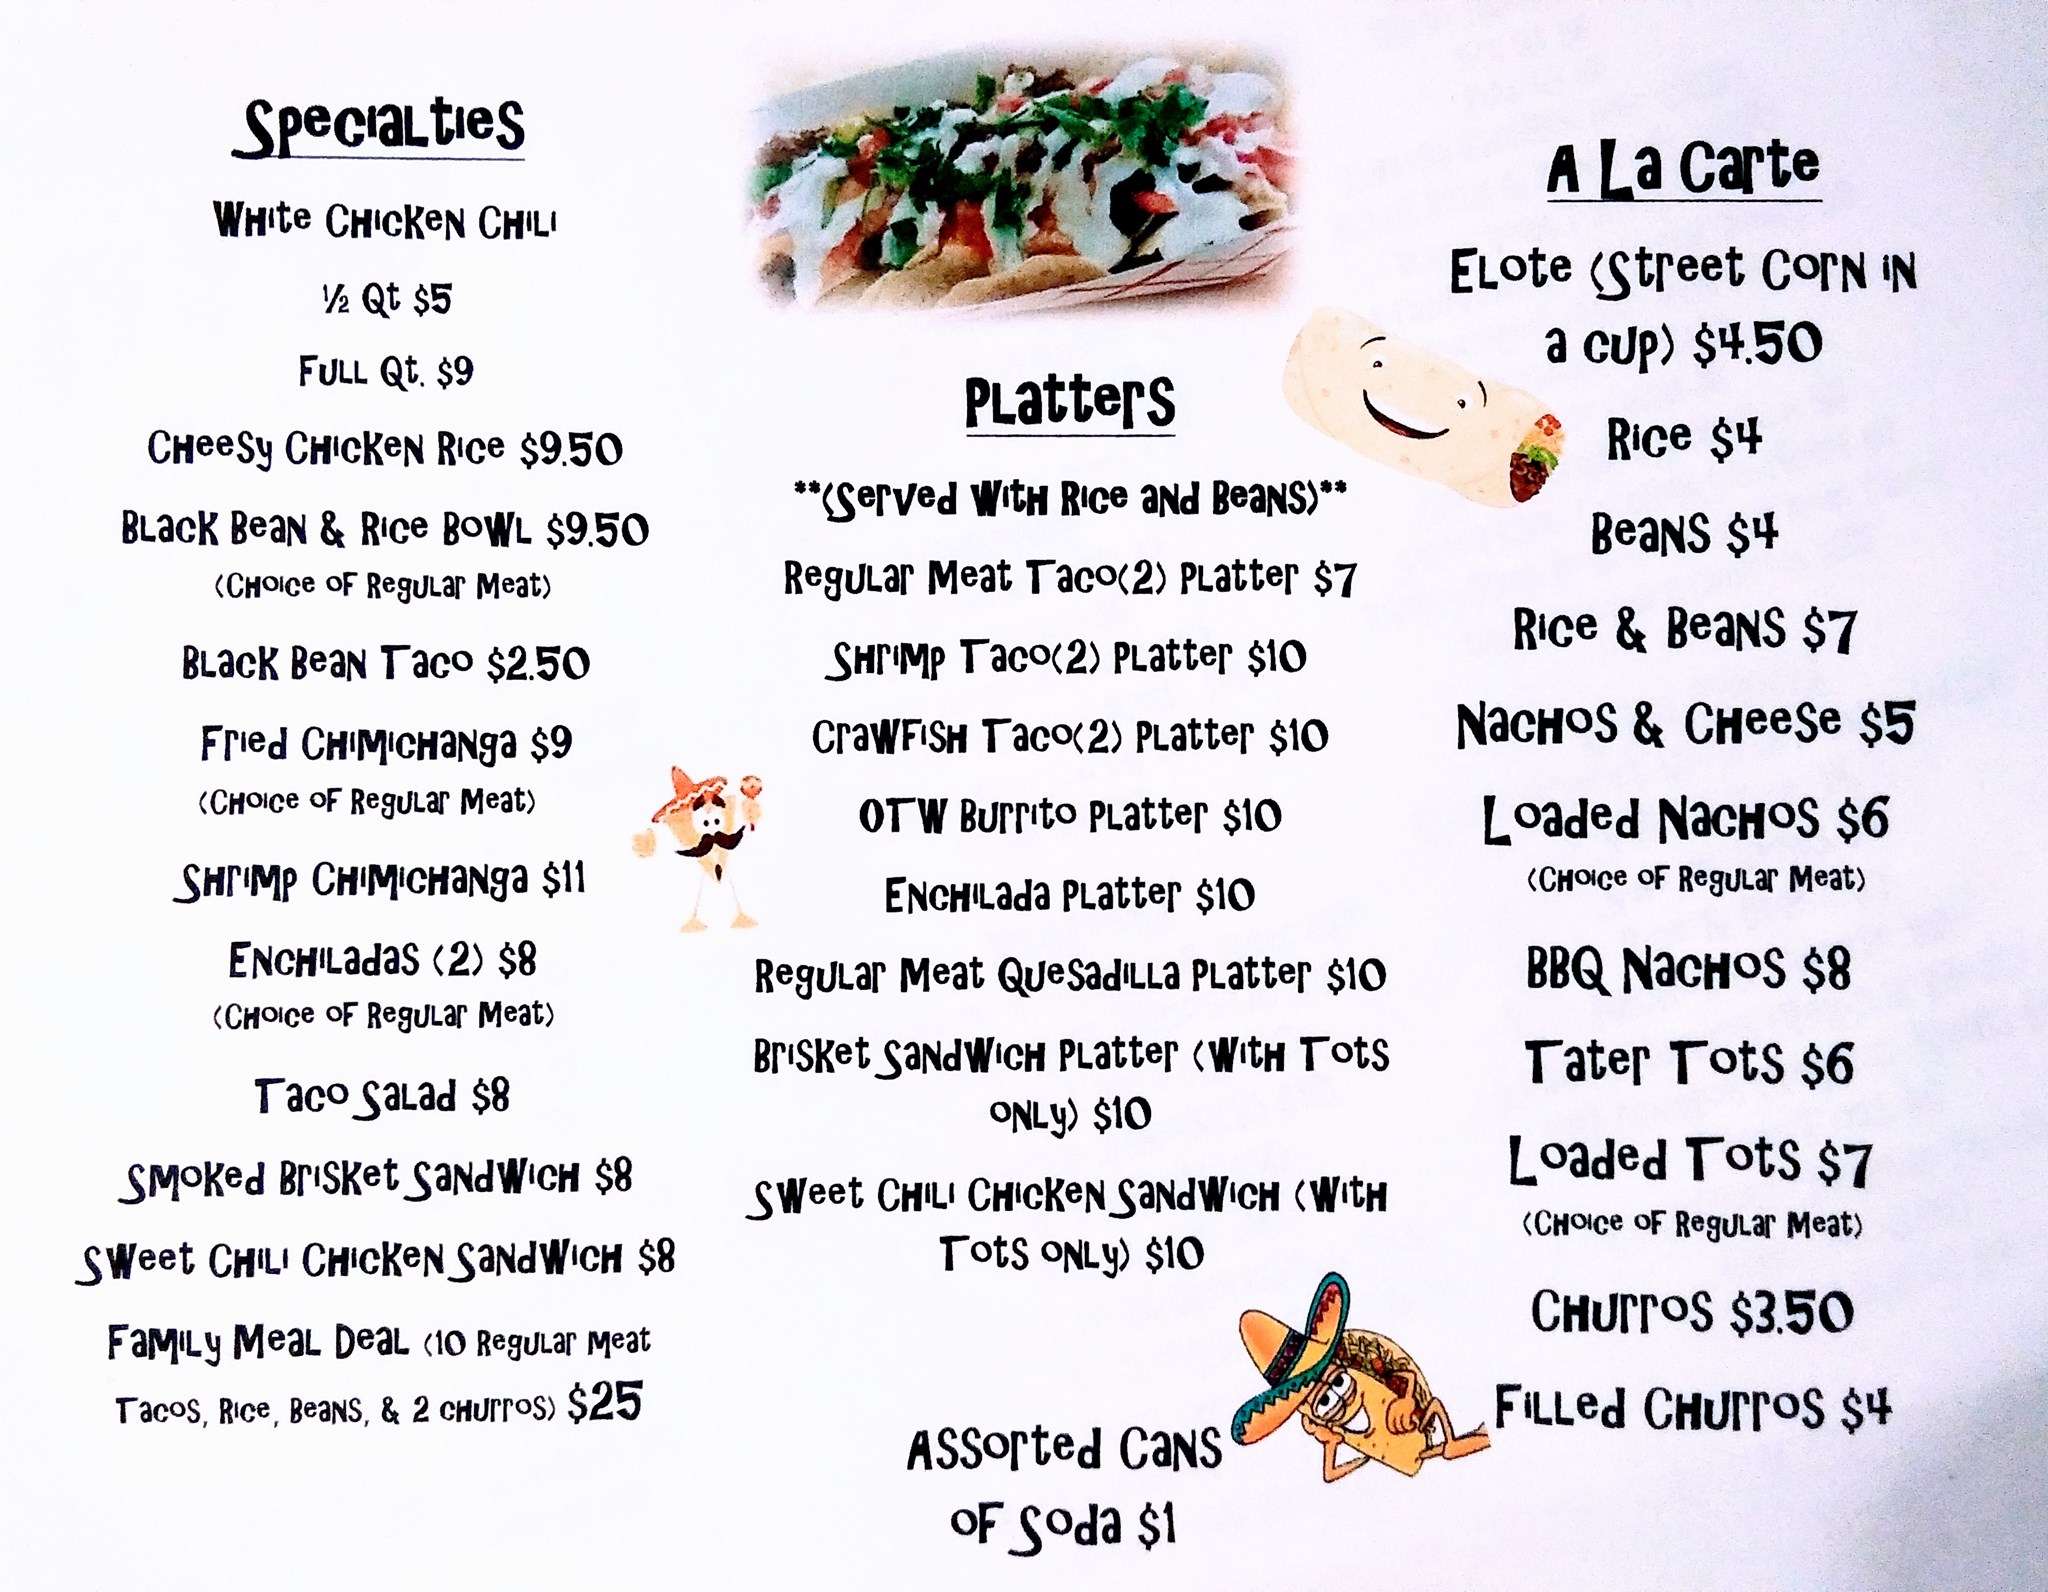 Specialties
White Chicken Chili
½ Qt $5
Full Qt. $9
Cheesy Chicken Rice $9.50
Black Bean & Rice Bowl $9.50
(Choice of Regular Meat)
Black Bean Taco $2.50
Fried Chimichanga $9
(Choice of Regular Meat)
Shrimp Chimichanga $11
Enchiladas (2) $8
(Choice of Regular Meat)
Taco Salad $8
Smoked Brisket Sandwich $8
Sweet Chili Chicken Sandwich $8
Family Meal Deal (10 Regular Meat
Tacos, Rice, Beans, & 2 churros) $25
Platters
**(Served with Rice and Beans)**
Regular Meat Taco(2) Platter $7
Shrimp Taco(2) Platter $10
Crawfish Taco(2) Platter $10
OTW Burrito Platter $10
Enchilada Platter $10
Regular Meat Quesadilla Platter $10
Brisket Sandwich Platter (With Tots
only) $10
Sweet Chili Chicken Sandwich (With
Tots only) $10
Assorted Cans
of Soda $1
A La Carte
Elote (Street Corn in
a cup) $4.50
Rice $4
Beans $4
Rice & Beans $7
Nachos & Cheese $5
Loaded Nachos $6
(Choice of Regular Meat)
BBQ Nachos $8
Tater Tots $6
Loaded Tots $7
(Choice of Regular Meat)
Churros $3.50
Filled Churros $4